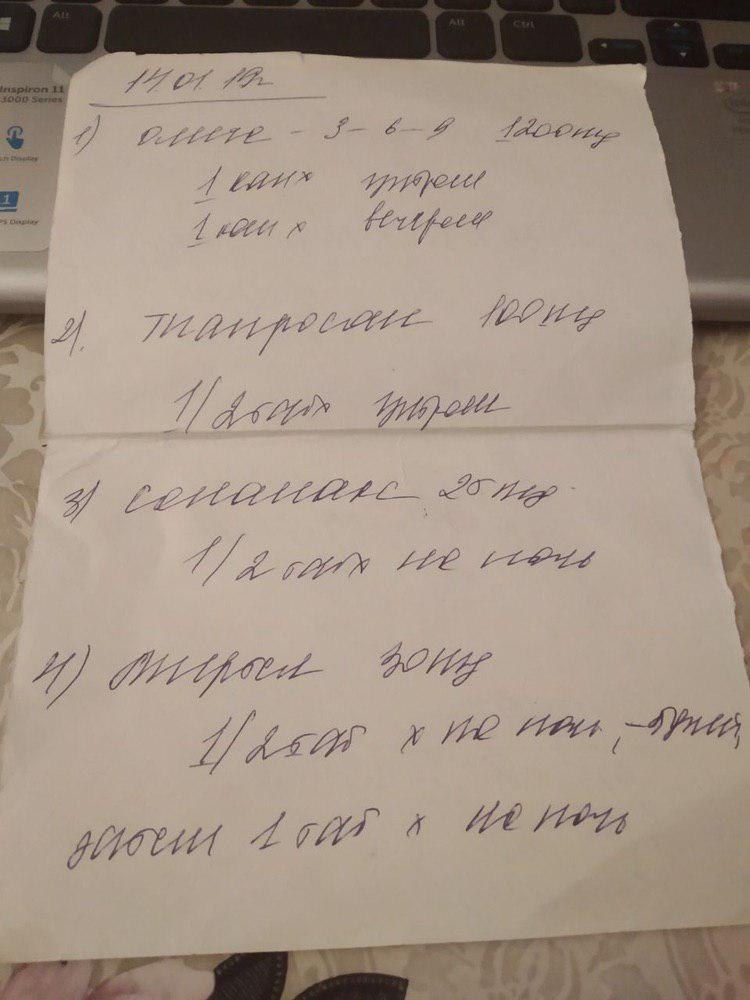 Alt
Alt
Ctrl
Inspiron 11
3000 Series
Display
Display
14.01.19г
1) Омега - 3 - 6 - 9 1200мг
1 капх утром
1 кап х вечером
2). Тиапросан 100мг
1/2табх утром
3) Сонапакс 25мг
1/2 табх на ночь
4) Миртел 30мг
1/2таб х на ночь, -
затем 1 таб х на ночь